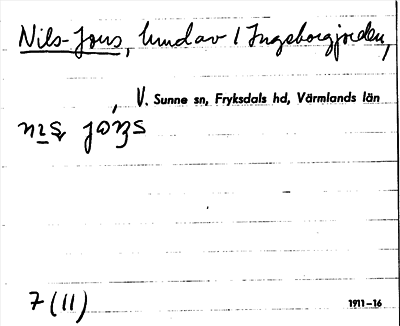 Nils-Jons, hmd av 1 Ingeborgjorden,
V. Sunne sn, Fryksdals hd, Värmlands län
7 (11)
1911–16